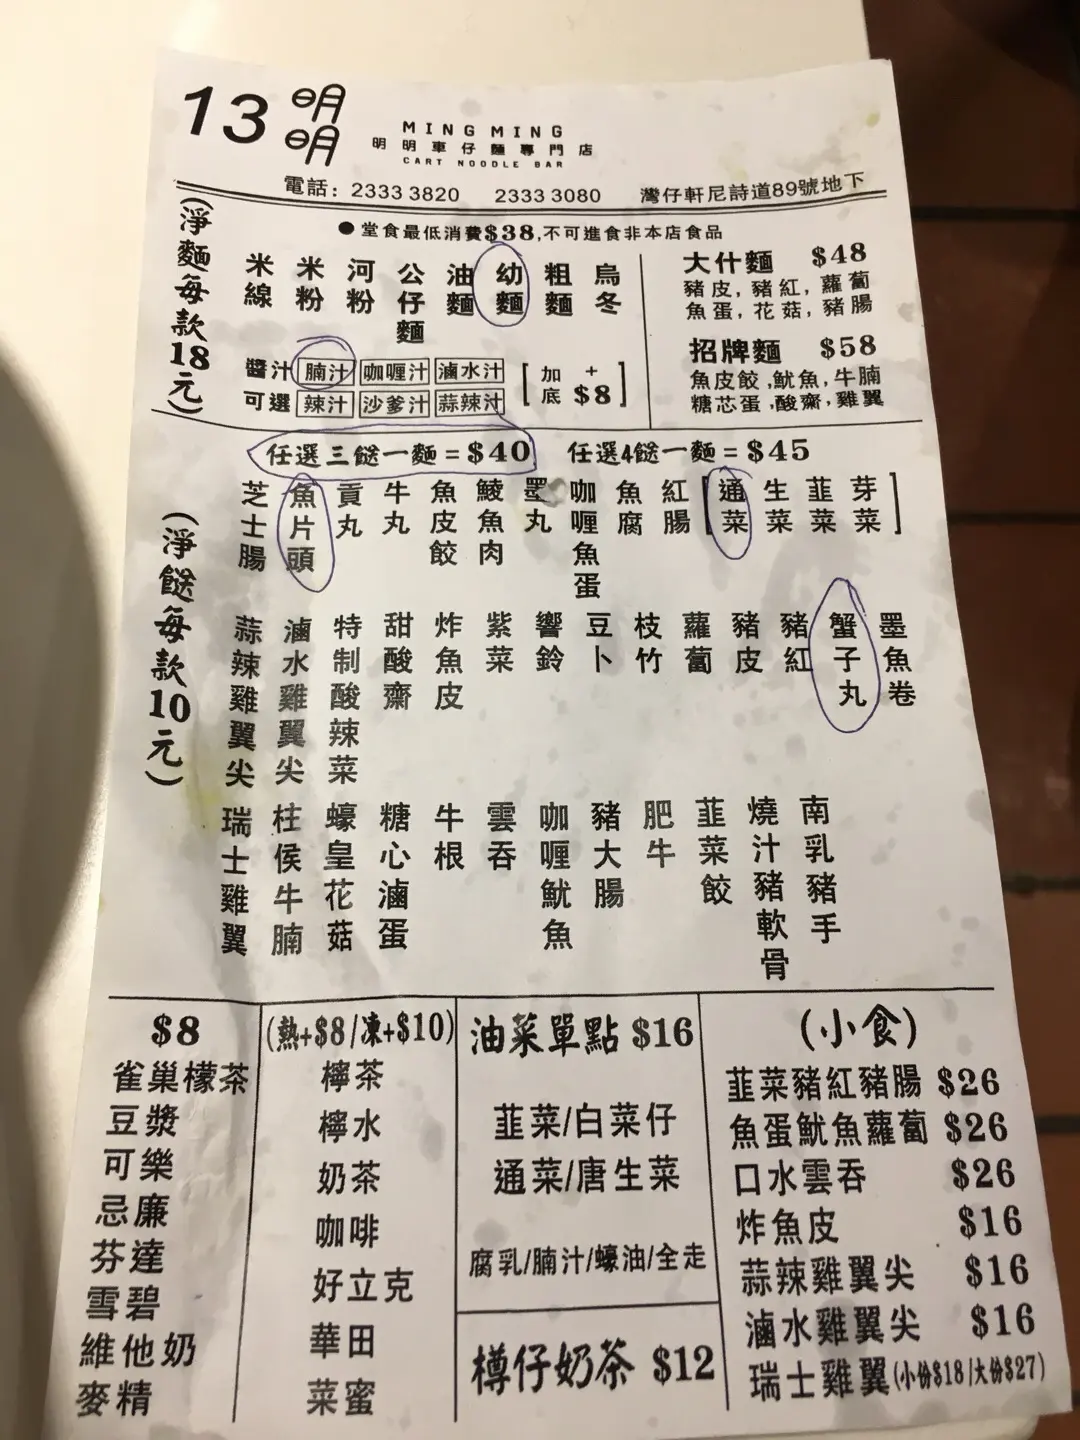 13 明明
MING MING
明明車仔麵專門店
CART NOODLE BAR
電話: 2333 3820 2333 3080 灣仔軒尼詩道89號地下
●堂食最低消費$38,不可進食非本店食品
(淨麵每款18元)
米線 米粉 河粉 公仔麵 油麵 幼麵 粗麵 烏冬
醬汁可選
腩汁 咖喱汁 滷水汁
辣汁 沙爹汁 蒜辣汁
[加底 +$8]
大什麵 $48
豬皮,豬紅,蘿蔔
魚蛋,花菇,豬腸
招牌麵 $58
魚皮餃,魷魚,牛腩
糖芯蛋,酸齋,雞翼
任選三餸一麵=$40 任選4餸一麵=$45
(淨餸每款10元)
芝士腸 魚片頭 貢丸 牛丸 魚皮餃 鯪魚肉 墨丸 咖喱魚蛋 魚腐 紅腸 [通菜 生菜 韮菜 芽菜]
蒜辣雞翼尖 滷水雞翼尖 特制酸辣菜 甜酸齋 炸魚皮 紫菜 響鈴 豆卜 枝竹 蘿蔔 豬皮 豬紅 蟹子丸 墨魚卷
瑞士雞翼 柱侯牛腩 蠔皇花菇 糖心滷蛋 牛根 雲吞 咖喱魷魚 豬大腸 肥牛 韮菜餃 燒汁豬軟骨 南乳豬手
$8
雀巢檬茶
豆漿
可樂
忌廉
芬達
雪碧
維他奶
麥精
(熱+$8/凍+$10)
檸茶
檸水
奶茶
咖啡
好立克
華田
菜蜜
油菜單點 $16
韮菜/白菜仔
通菜/唐生菜
腐乳/腩汁/蠔油/全走
樽仔奶茶 $12
(小食)
韮菜豬紅豬腸 $26
魚蛋魷魚蘿蔔 $26
口水雲吞 $26
炸魚皮 $16
蒜辣雞翼尖 $16
滷水雞翼尖 $16
瑞士雞翼(小份$18/大份$27)